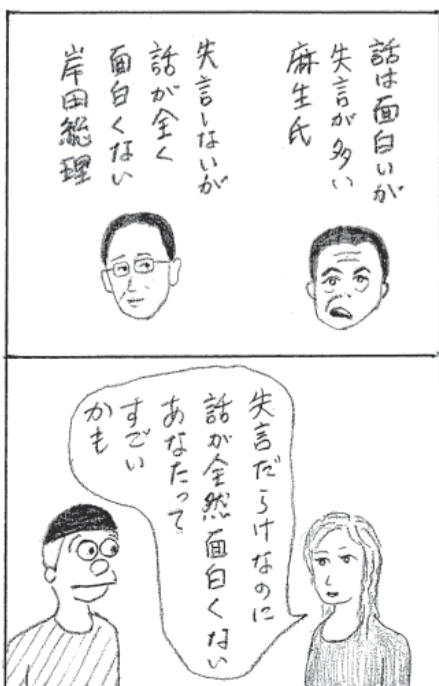 話は面白いが
失言が多い
麻生氏
失言しないが
話が全く
面白くない
岸田総理
失言だらけなのに
話が全然面白くない
あなたって
すごい
かも